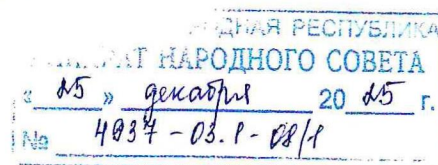 РЕСПУБЛИКА
НАРОДНОГО СОВЕТА
« 25 » декабря 20 25 г.
№ 4937-03.1-08/1